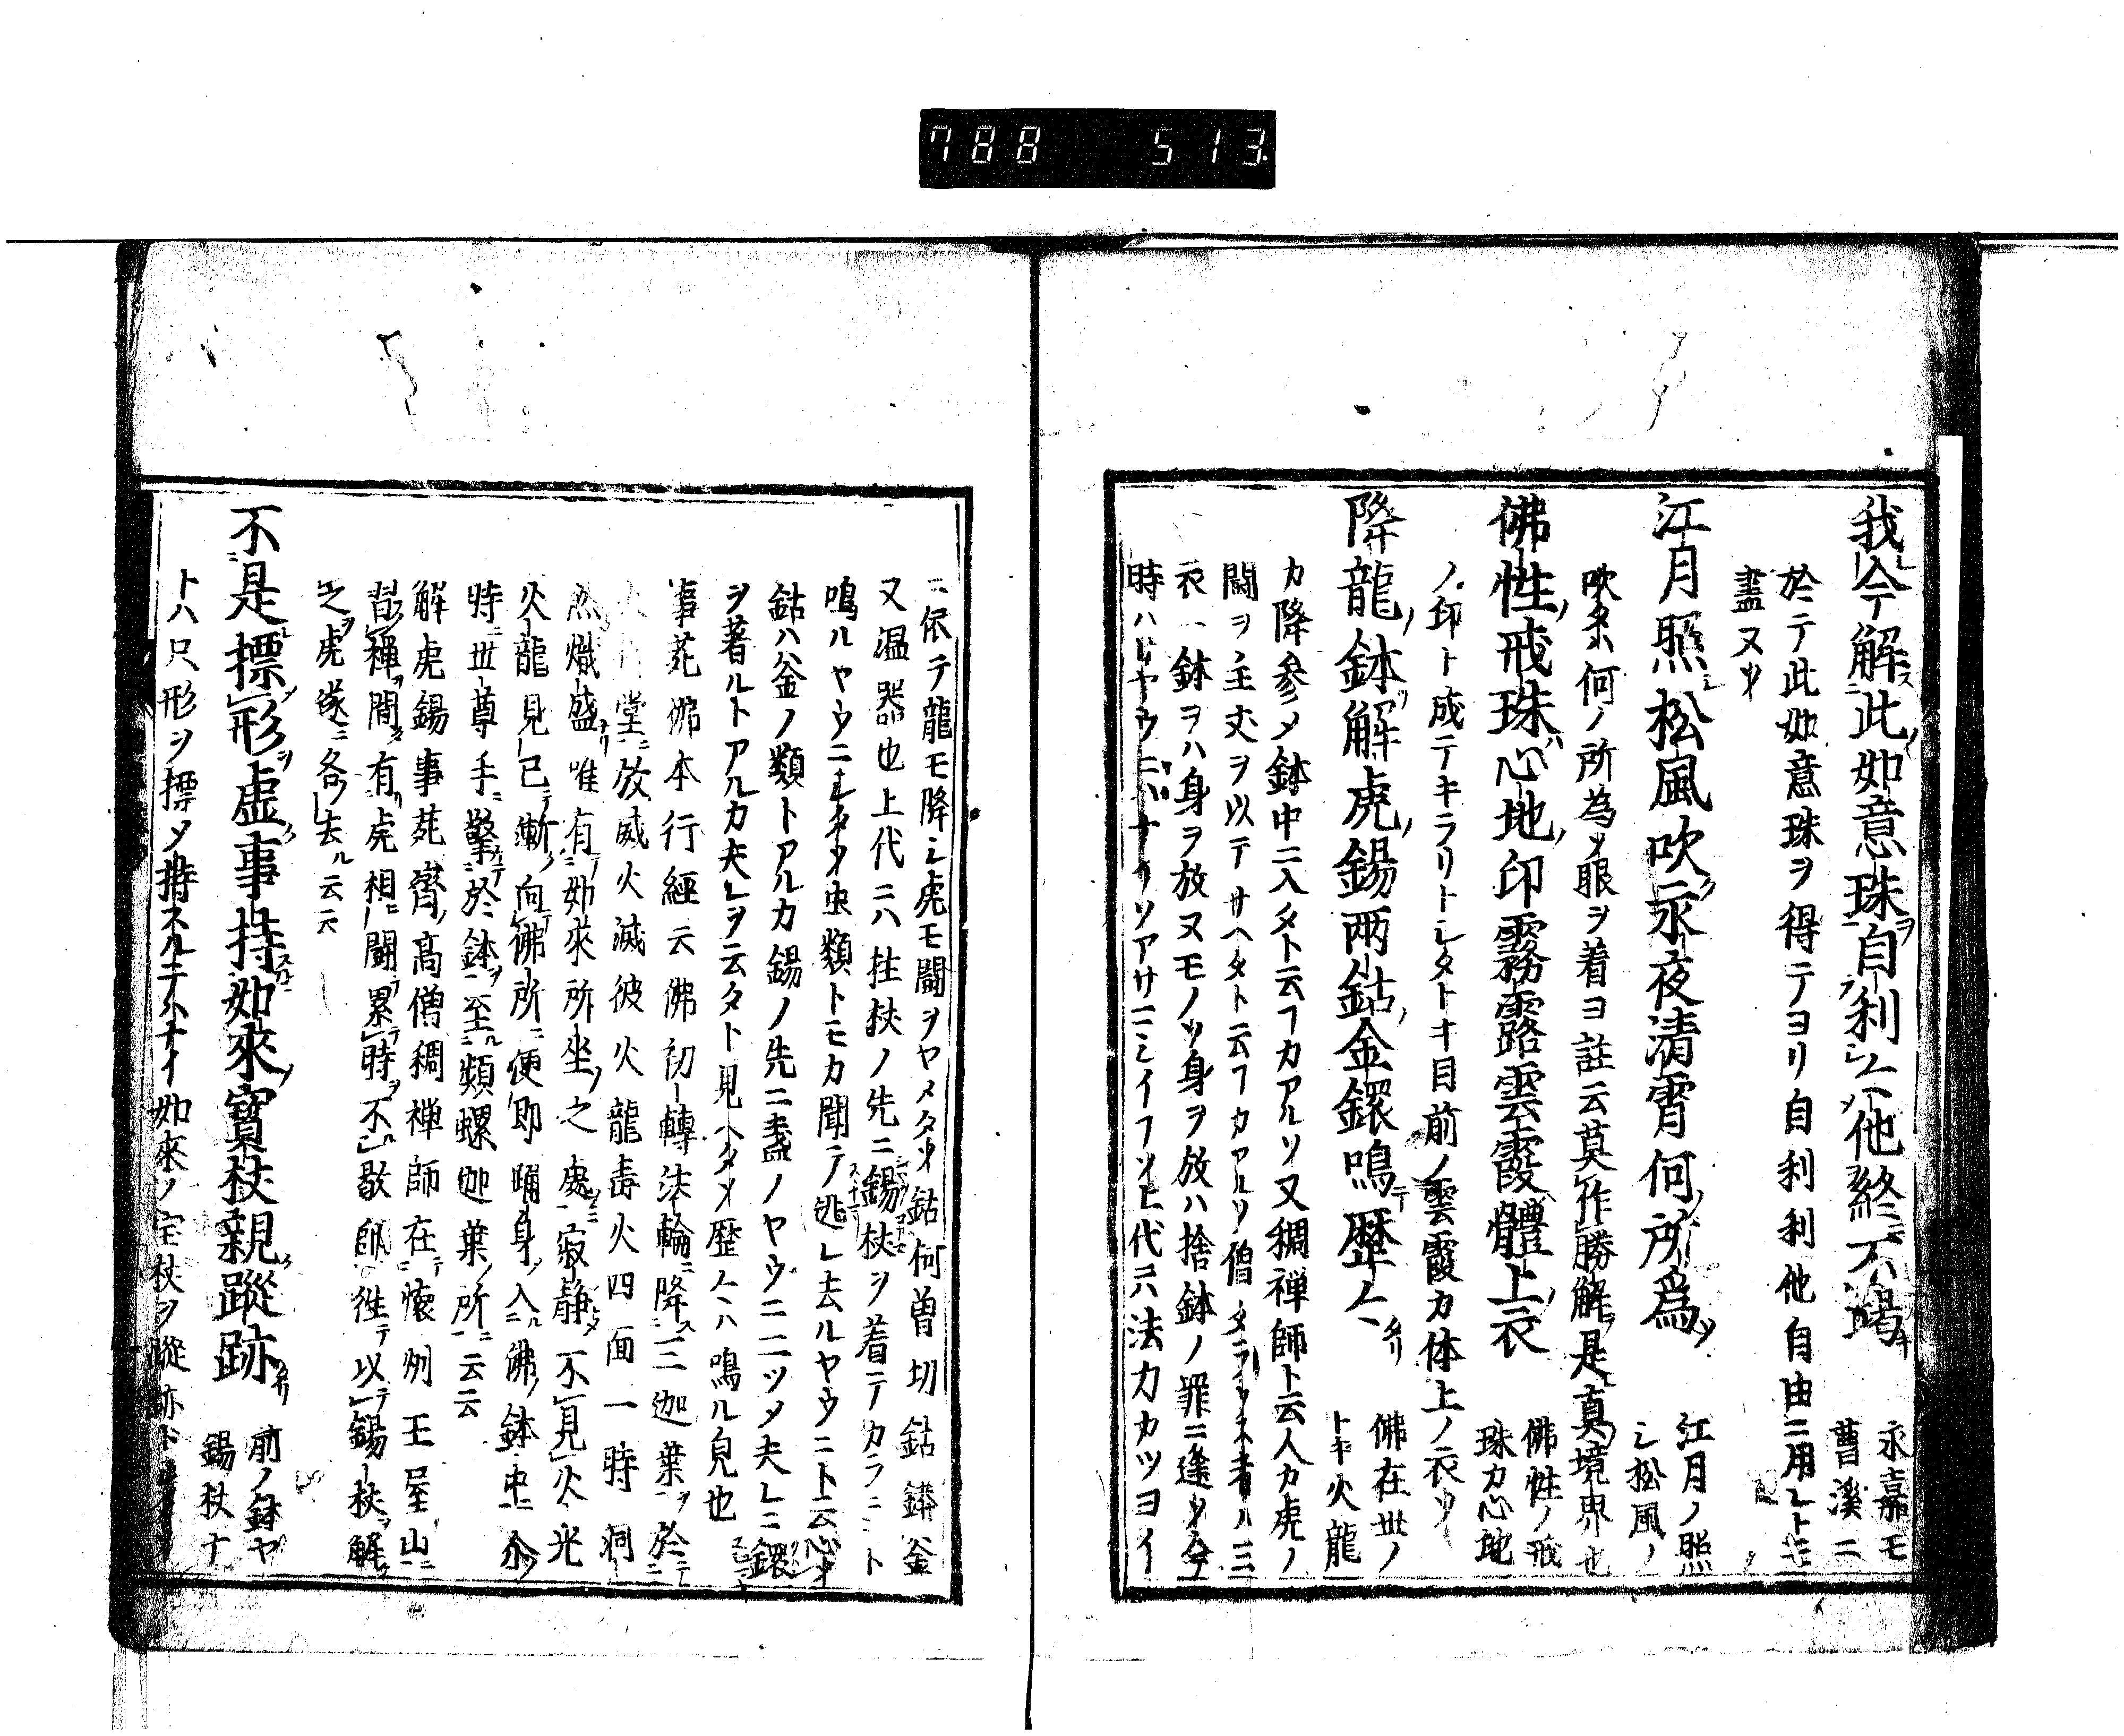 788 513
我今解此如意珠自利々他終不竭 永嘉モ
曹溪ニ
於テ此如意珠ヲ得テヨリ自利利他自由ニ用レトモ
盡又ソ
江月照松風吹永夜清霄何所爲 江月ノ照
シ松風ノ
吹タホ何ノ所為ソ眼ヲ着ヨ註云莫作勝解是真境界也
佛性戒珠心地印霧露雲霞體上衣 佛性ノ戒
珠カ心地
ノ印ト成テキラリトシタトキ目前ノ雲霞カ体上ノ衣ソ
降龍鉢解虎錫兩鈷金鐶鳴歷々 佛在世ノ
トキ火龍
カ降参メ鉢中ニ入タト云フカアルソ又稠禅師ト云人カ虎ノ
闘ヲ主丈ヲ以テサヘタト云フカアルソ僧タラウスル者ハ三
衣一鉢ヲハ身ヲ放又モノソ身ヲ放ハ捨鉢ノ罪ニ逢ソ今
時ハ
ニ依テ龍モ降シ虎モ闘ヲヤメタソ鈷何曽切鈷鏻釜
又温器也上代ニハ拄杖ノ先ニ錫杖ヲ着テカラニト
鳴ルヤウニシタソ虫類トモカ聞テ逃レ去ルヤウニト云心ソ
鈷ハ釜ノ類トアルカ錫ノ先ニ盞ノヤウニ二ツメ夫レニ鐶
ヲ著ルトアルカ夫レヲ云タト見ヘタソ歷々ハ鳴ル皃也
事苑佛本行經云佛初轉法輪降三迦葉於
火 堂放威火滅彼火龍毒火四面一時洞
然熾盛唯有如來所坐之處寂静不見火光
火龍見已漸向佛所便即踊身入佛鉢中尒
時世尊手擎於鉢至頻螺迦葉所云云
解虎錫事苑齊高僧稠禅師在懷州王屋山
習禅間有虎相闘累時不歇師徃以錫杖解
之虎遂各去云云
不是標形虛事持如來寶杖親蹤跡 前ノ鉢ヤ
錫杖ナ
トハ只形ヲ摽メ持スルテハナイ如來ノ宝杖ヲ蹤跡